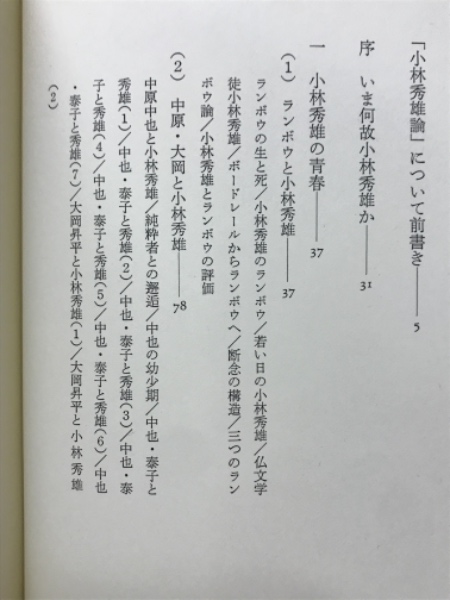 「小林秀雄論」について前書き――5
序 いま何故小林秀雄か――31
一 小林秀雄の青春――37
(1) ランボウと小林秀雄――37
ランボウの生と死/小林秀雄のランボウ/若い日の小林秀雄/仏文学
徒小林秀雄/ボードレールからランボウへ/断念の構造/三つのラン
ボウ論/小林秀雄とランボウの評価
(2) 中原・大岡と小林秀雄――78
中原中也と小林秀雄/純粋者との邂逅/中也の幼少期/中也・泰子と
秀雄(1)/中也・泰子と秀雄(2)/中也・泰子と秀雄(3)/中也・泰
子と秀雄(4)/中也・泰子と秀雄(5)/中也・泰子と秀雄(6)/中也
・泰子と秀雄(7)/大岡昇平と小林秀雄(1)/大岡昇平と小林秀雄
(2)